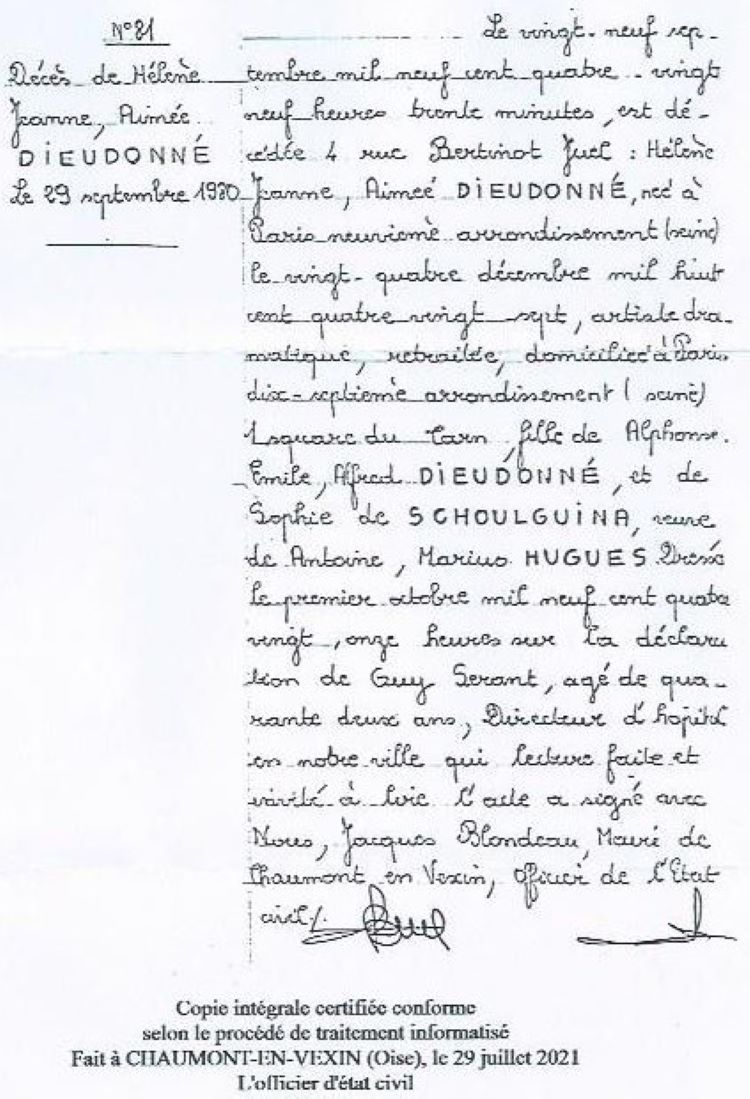 N°81
Décès de Hélène
Jeanne, Aimée
DIEUDONNÉ
Le 29 septembre 1980
Le vingt-neuf sep-
tembre mil neuf cent quatre-vingt
neuf heures trente minutes, est dé-
cédée 4 rue Bertinot Juel : Hélène
Jeanne, Aimeé DIEUDONNÉ, neé à
Paris neuvième arrondissement (seine)
le vingt-quatre décembre mil huit
cent quatre vingt sept, artiste dra-
matique, retraitée, domiciliée à Paris
dix-septième arrondissement (seine)
1 square du Tarn, fille de Alphonse.
Emile, Alfred DIEUDONNÉ, et de
Sophie de SCHOULGUINA, veuve
de Antoine, Marius HUGUES. Dressé
le premier octobre mil neuf cent quatre
vingt, onze heures sur la déclara
tion de Guy Serant, agé de qua-
rante deux ans, Directeur d'hopital
en notre ville qui lecture faite et
invité à lire l'acte a signé avec
Nous, Jacques Blondeau, Maire de
Chaumont en Vexin, officier de l'Etat
civil /.
Copie intégrale certifiée conforme
selon le procédé de traitement informatisé
Fait à CHAUMONT-EN-VEXIN (Oise), le 29 juillet 2021
L'officier d'état civil